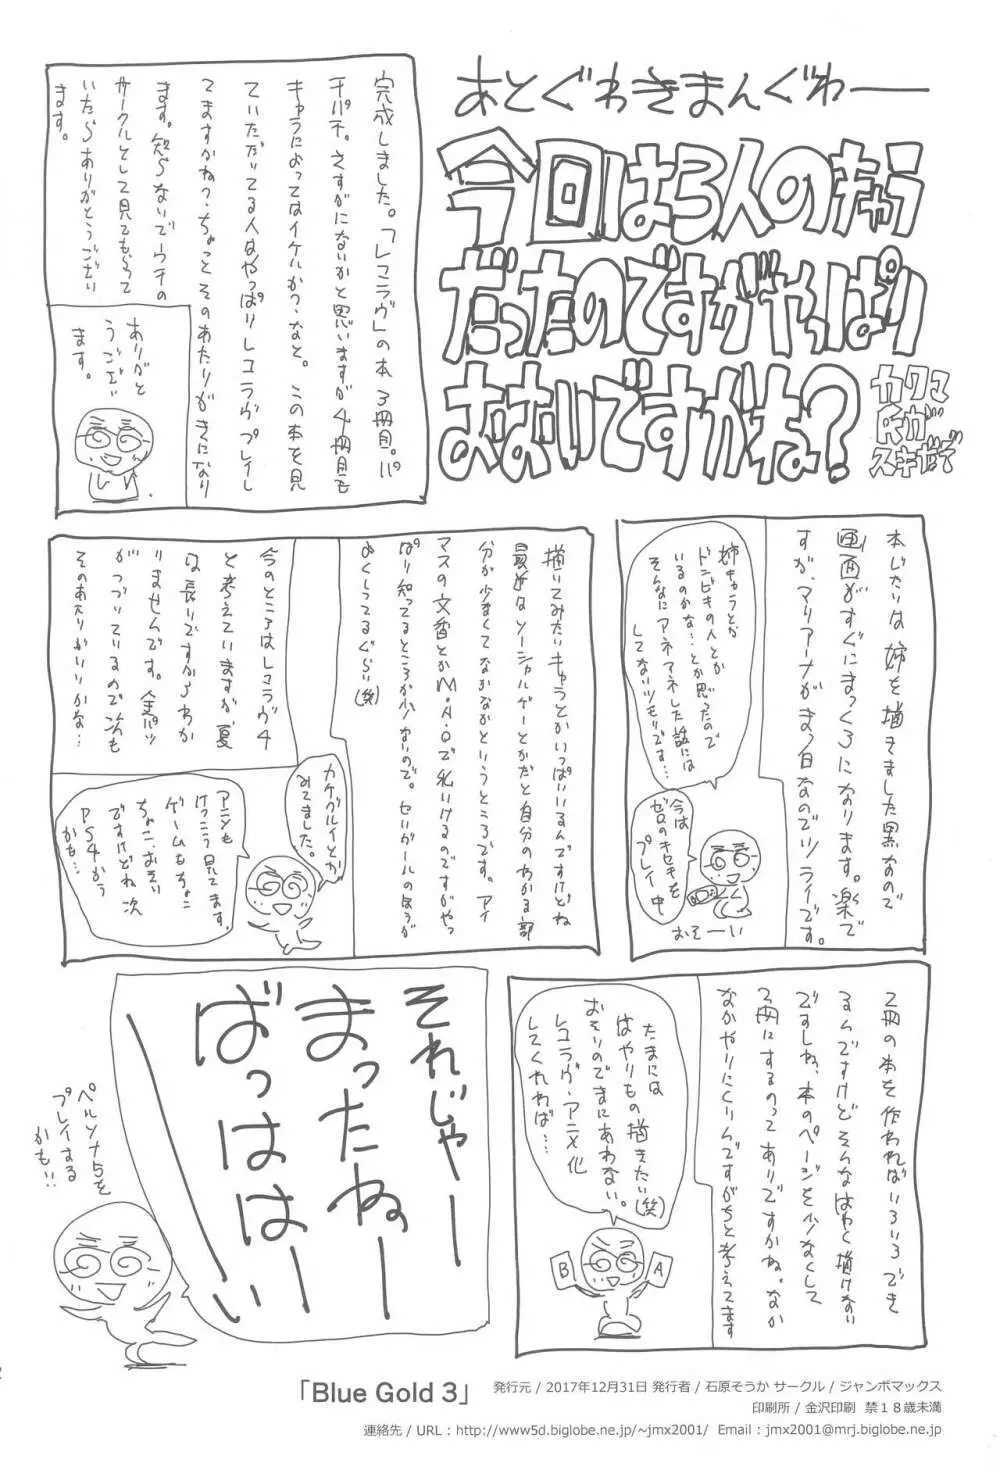 あとぐわきまんぐわー
今回は3人のキャラ
だったのですがやっぱり
おおいですかね?
カワマ
スキだぞ
完成しました。「レコラヴ」の本3冊目。パ
チパチ。さすがにないかと思いますが4冊目も
キャラによってはイケルか?なと。この本を見
ていただいてる人はやっぱりレコラヴプレイし
てますかね?ちょっとそのあたりがきになり
ます。知らないでウチの
サークルとして見てもらって
いたらありがとうござい
ます。
ありがと
うござい
ます。
本じたいは姉を描きました黒なので
画面がすぐにまっくろになります。楽で
すが、マリアーナがまっ白なのでツライです。
姉キャラとか
ドンビキの人とか
いるのかな…とか思ったので
そんなにアネアネした話には
してないツモリです…
今は
ゼロのキセキを
プレイ中
おそーい
描いてみたいキャラとかいっぱいいるんですけどね
最近なソーシャルゲーとかだと自分のわかる部
分が少なくてなかなかというところです。アイ
マスの文香とかM・A・Oで
ぱり知ってるところが少ないので。セハガールのほうが
よくしってるぐらい(笑)
今のところはレコラヴ4
と考えていますが、夏
は長いですからわか
りませんです。金パツ
がつづいているので次も
そのあたりがいいかな…
カケグルイとか
みてました。
アニメも
けっこう見てます。
ゲームもちょこ
ちょこ、おそい
ですけどね 次
PS4かう
かも…
2冊の本を作れればいろいろでき
るんですけどそんなはやく描けない
ですしね、本のページを少なくして
2冊にするのってありですかね。なか
なかやりにくいんですがちと考えてます
たまには
はやりもの描きたい(笑)
おそいのでまにあわない。
レコラヴ・アニメ化
してくれれば…
B
A
それじゃー
まったねー
ばっはははーい
ペルソナ5を
プレイする
かも!!
「Blue Gold 3」 発行元 / 2017年12月31日 発行者 / 石原そうか サークル / ジャンボマックス
印刷所 / 金沢印刷 禁18歳未満
連絡先 / URL : http://www5d.biglobe.ne.jp/~jmx2001/ Email : jmx2001@mrj.biglobe.ne.jp